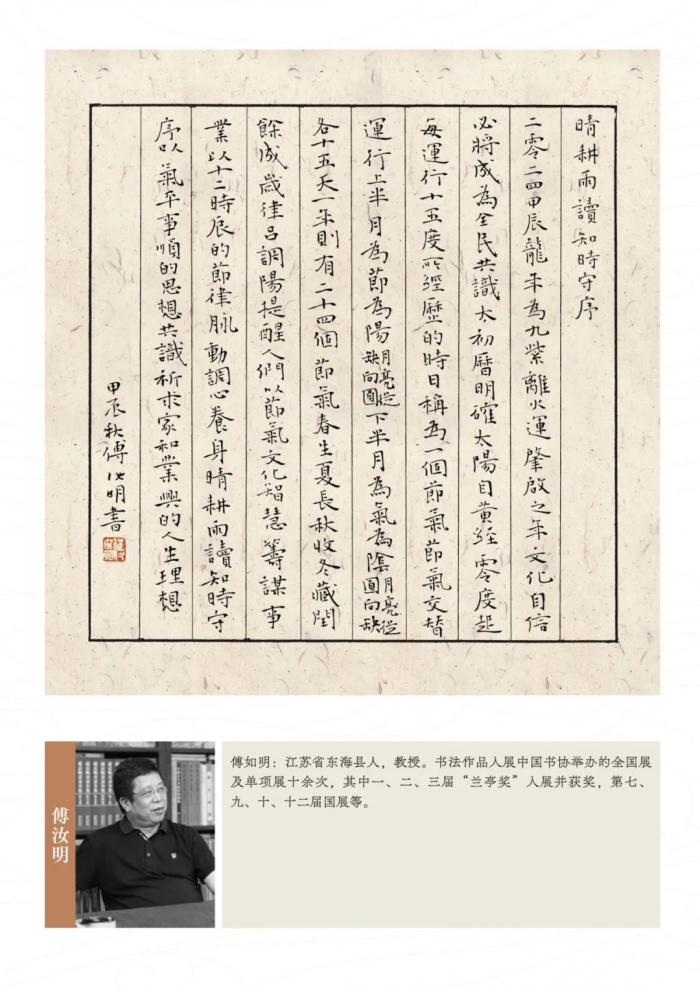 晴耕雨讀知時守序
二零二四甲辰龍年為九紫離火運肇啟之年文化自信
必將成為全民共識太初曆明確太陽自黃經零度起
每運行十五度所經歷的時日稱為一個節氣節氣交替
運行上半月為節為陽月亮從缺向圓下半月為氣為陰月亮從圓向缺
各十五天一年則有二十四個節氣春生夏長秋收冬藏閏
餘成歲律呂調陽提醒人們以節氣文化智慧籌謀事
業以十二時辰的節律脉動調心養身晴耕雨讀知時守
序以氣平事順的思想共識祈求家和業興的人生理想
甲辰秋傅汝明書
傅汝明
傅如明：江苏省东海县人，教授。书法作品入展中国书协举办的全国展
及单项展十余次，其中一、二、三届“兰亭奖”入展并获奖，第七、
九、十、十二届国展等。